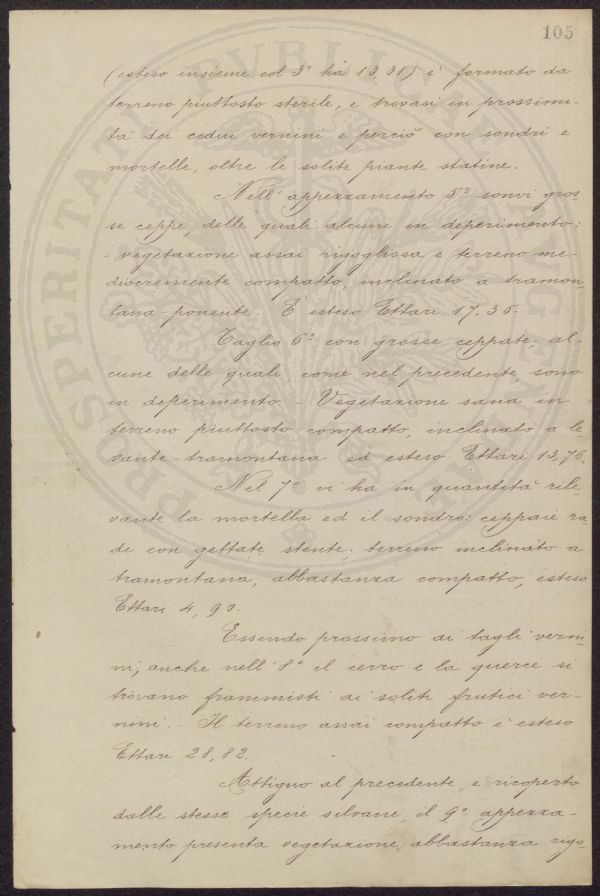 105
(esteso insieme col 3° ha 13,31) è formato da
terreno piuttosto sterile, e trovasi in prossimi-
tà dei cedui vernini e perciò con sondri e
mortelle, oltre le solite piante statine.
Nell' appezzamento 5° sonvi gros-
se ceppe, delle quali alcune in deperimento:
- vegetazione assai rigogliosa e terreno me-
diocremente compatto, inclinato a tramon-
tana-ponente. È esteso Ettari 17,35.
Taglio 6° con grosse ceppate, al-
cune delle quali come nel precedente, sono
in deperimento. - Vegetazione sana in
terreno piuttosto compatto, inclinato a le-
vante-tramontana ed esteso Ettari 13,76.
Nel 7° vi ha in quantità rile
vante la mortella ed il sondro: ceppaie ra
de con gettate stente; terreno inclinato a
tramontana, abbastanza compatto, esteso
Ettari 4,90.
Essendo prossimo ai tagli verni-
ni, anche nell' 8° il cerro e la querce si
trovano frammisti ai soliti frutici ver-
nini. - Il terreno assai compatto è esteso
Ettari 28,82.
Attiguo al precedente, e ricoperto
dalle stesse specie silvane, il 9° appezza-
mento presenta vegetazione abbastanza rigo-
PROSPERITATI PVBLICAE AVGENDAE